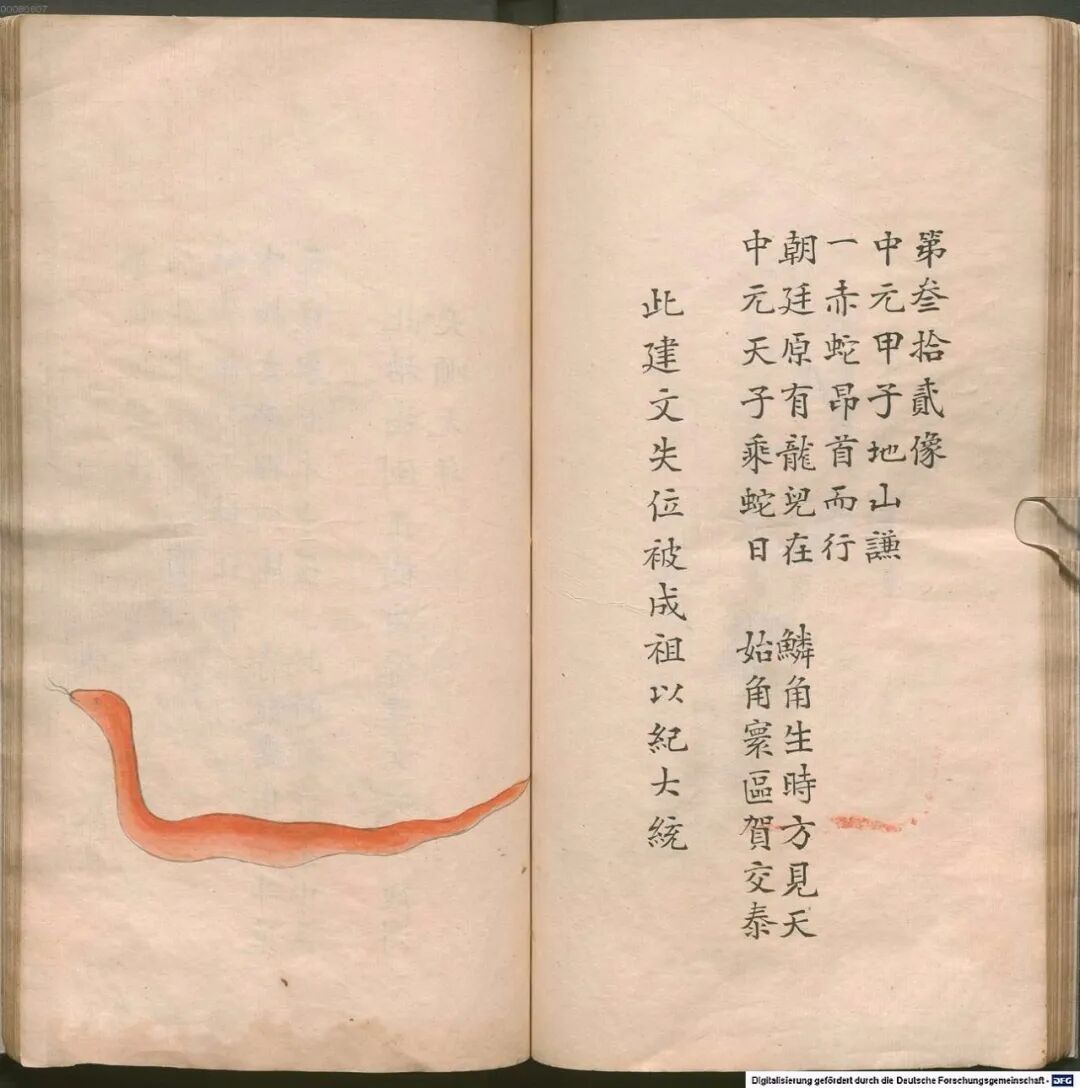 第叄拾貳像
中元甲子地山謙
一赤蛇昂首而行
朝廷原有龍兒在 鱗角生時方見天
中元天子乘蛇日 始角寰區賀交泰
此建文失位被成祖以紀大統
00086807
Digitalisierung gefördert durch die Deutsche Forschungsgemeinschaft - DFG